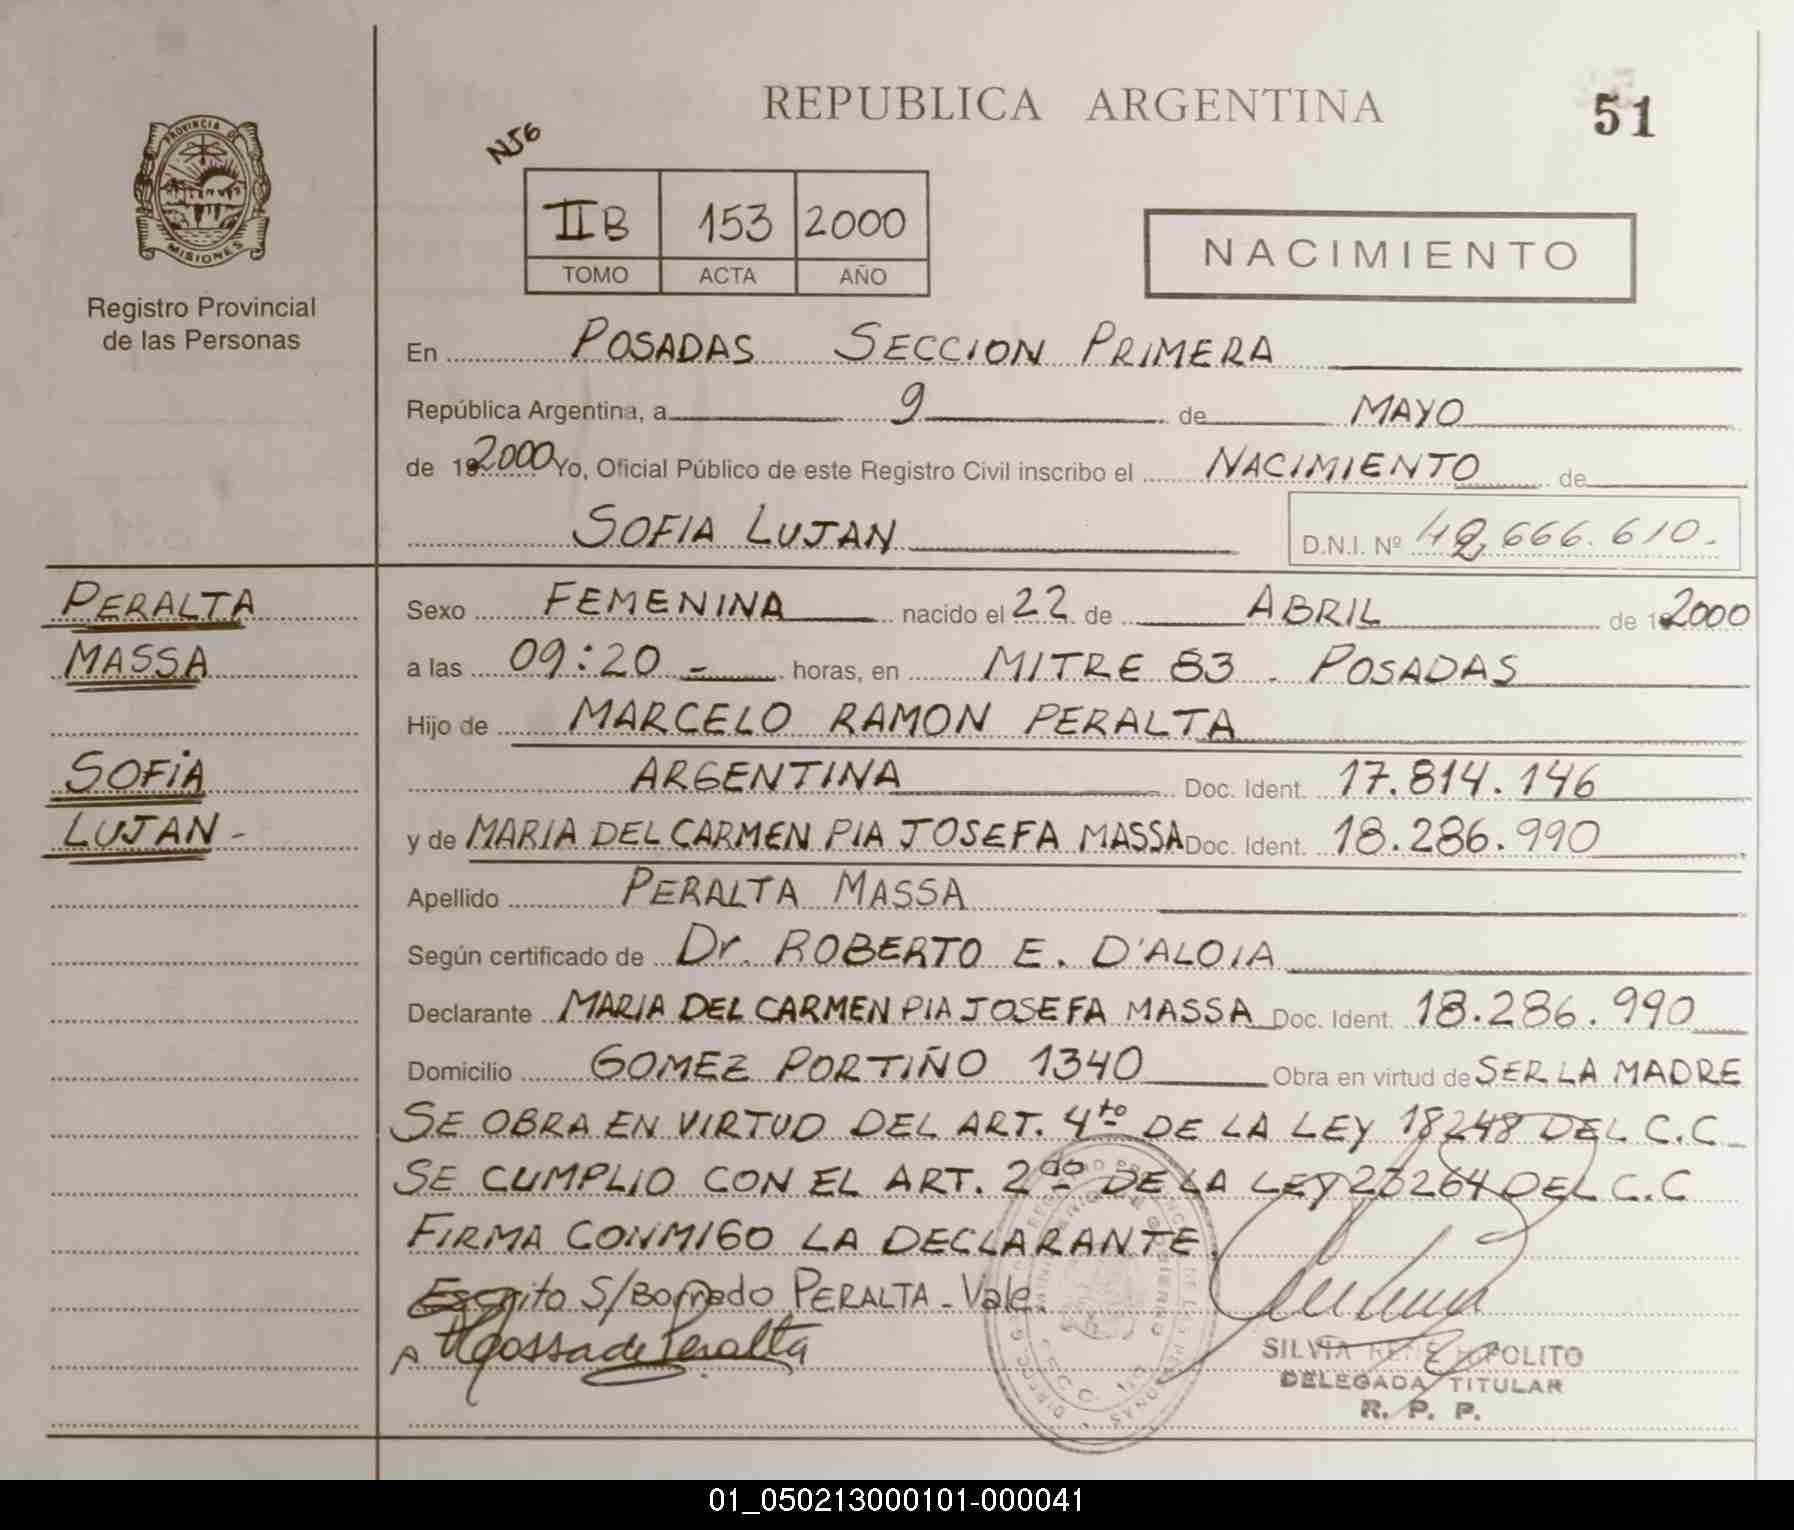 REPUBLICA ARGENTINA
51
PROVINCIA DE
MISIONES
Registro Provincial
de las Personas
N56
IIB 153 2000
TOMO ACTA AÑO
NACIMIENTO
En POSADAS SECCION PRIMERA
República Argentina, a 9 de MAYO
de 192000 Yo, Oficial Público de este Registro Civil inscribo el NACIMIENTO de
SOFIA LUJAN
D.N.I. Nº 42.666.610.
PERALTA
MASSA
SOFIA
LUJAN -
Sexo FEMENINA nacido el 22 de ABRIL de 192000
a las 09:20 - horas, en MITRE 83 . POSADAS
Hijo de MARCELO RAMON PERALTA
ARGENTINA Doc. Ident. 17.814.146
y de MARIA DEL CARMEN PIA JOSEFA MASSA Doc. Ident. 18.286.990
Apellido PERALTA MASSA
Según certificado de Dr. ROBERTO E. D'ALOIA
Declarante MARIA DEL CARMEN PIA JOSEFA MASSA Doc. Ident. 18.286.990
Domicilio GOMEZ PORTIÑO 1340 Obra en virtud de SER LA MADRE
SE OBRA EN VIRTUD DEL ART. 4to DE LA LEY 18248 DEL C.C
SE CUMPLIO CON EL ART. 2do DE LA LEY 23264 DEL C.C
FIRMA CONMIGO LA DECLARANTE.
Escrito S/Borrado PERALTA - Vale.
SILVIA RENE HIPOLITO
DELEGADA TITULAR
R. P. P.
01_050213000101-000041